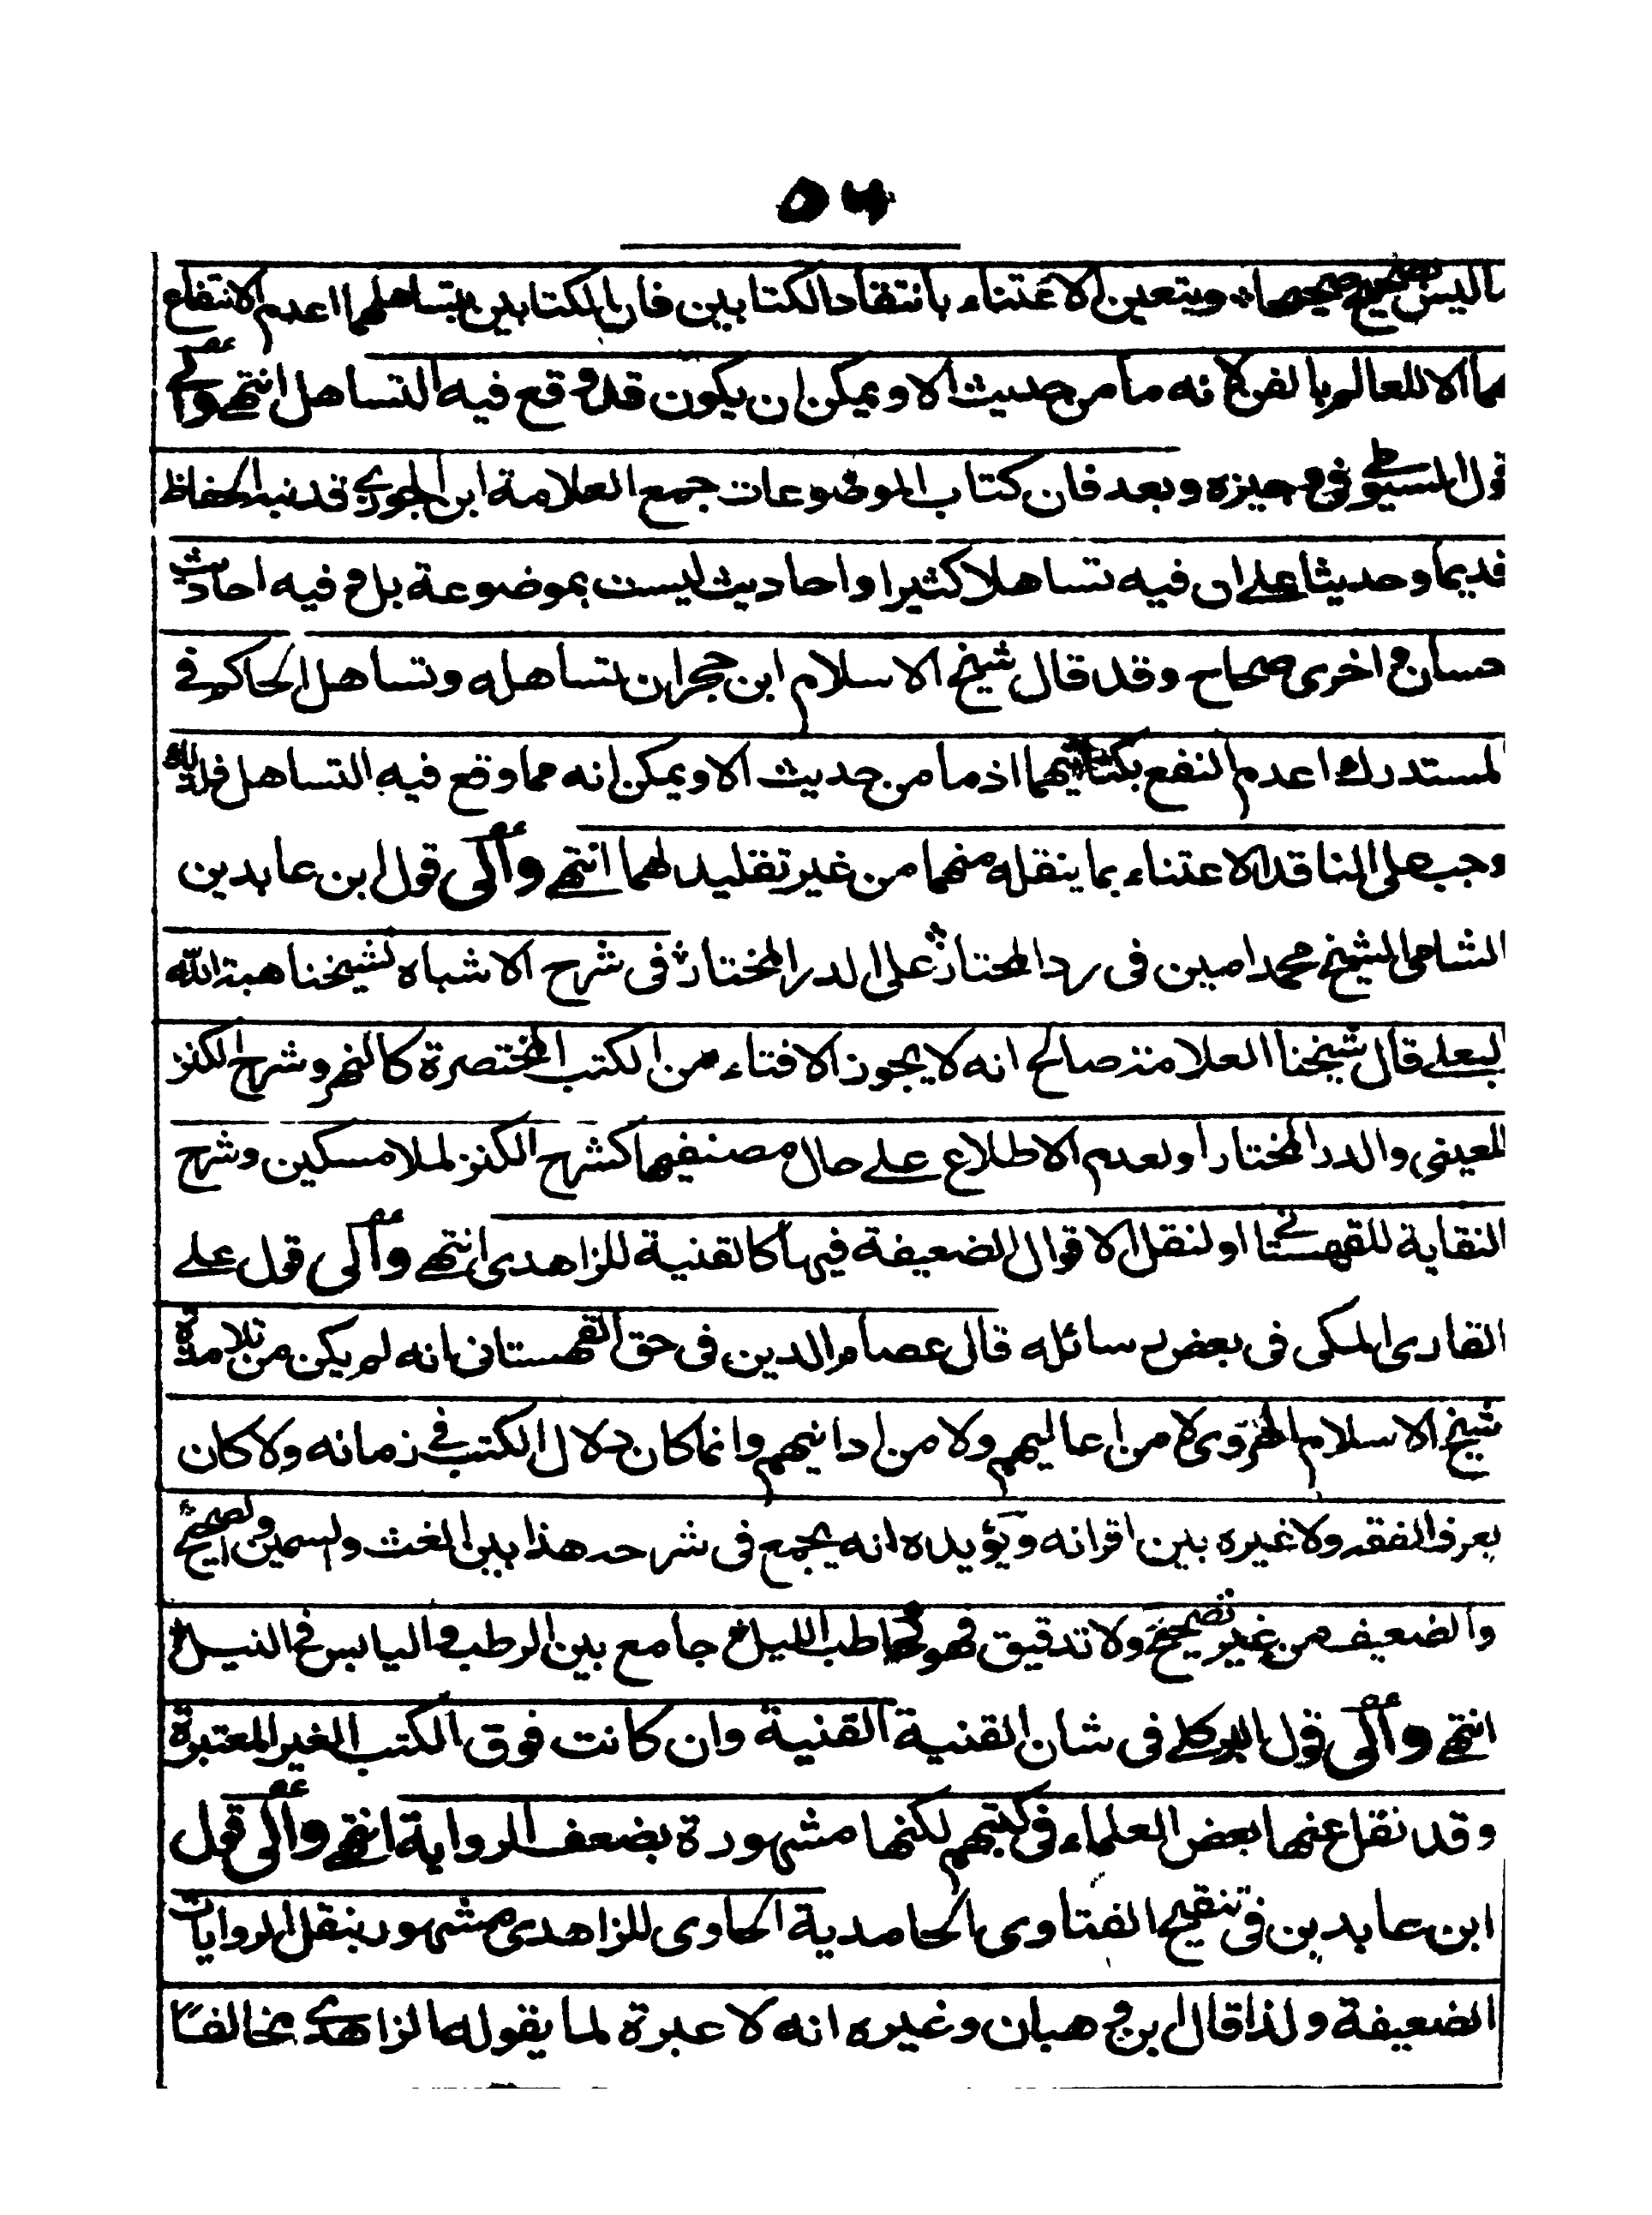 ٥٦
ما ليس بصحيح صحيحا ويتعين الاعتناء بانتقاد الكتابين فان الكتابين بتساهلهما اعدم الانتفاع
بهما الا للعالم بالفن لانه ما من حديث الا ويمكن ان يكون قد وقع فيه التساهل انتهى والى
قول السيوطي في وجيزه وبعد فان كتاب الموضوعات جمع العلامة ابن الجوزي قد نبه الحفاظ
قديما وحديثا على ان فيه تساهلا كثيرا واحاديث ليست بموضوعة بل وفيه احاديث
حسان و اخرى صحاح وقد قال شيخ الاسلام ابن حجر ان تساهله وتساهل الحاكم في
المستدرك اعدم النفع بكتابيهما اذ ما من حديث الا ويمكن انه مما وقع فيه التساهل فلذلك
وجب على الناقد الاعتناء بما ينقله منهما من غير تقليد لهما انتهى والى قول ابن عابدين
الشامي الشيخ محمد امين في رد المحتار على الدر المختار في شرح الاشباه لشيخنا هبة الله
البعلي قال شيخنا العلامة صالح انه لا يجوز الافتاء من الكتب المختصرة كالنهر وشرح الكنز
للعيني والدر المختار او لعدم الاطلاع على حال مصنفيها كشرح الكنز لملا مسكين وشرح
النقاية للقهستاني او لنقل الاقوال الضعيفة فيها كالقنية للزاهدي انتهى والى قول علي
القاري المكي في بعض رسائله قال عصام الدين في حق القهستاني انه لم يكن من تلامذة
شيخ الاسلام الهروي لا من اعاليهم ولا من ادانيهم وانما كان دلال الكتب في زمانه ولا كان
يعرف الفقه ولا غيره بين اقرانه ويؤيده انه يجمع في شرحه هذا بين الغث والسمين والصحيح
والضعيف من غير تصحيح ولا تدقيق فهو كحاطب الليل جامع بين الرطب واليابس في النيل
انتهى والى قول البركلي في شان القنية القنية وان كانت فوق الكتب الغير المعتبرة
وقد نقل عنها بعض العلماء في كتبهم لكنها مشهورة بضعف الرواية انتهى والى قول
ابن عابدين في تنقيح الفتاوى الحامدية الحاوى للزاهدى مشهور بنقل الروايات
الضعيفة ولذا قال ابن وهبان وغيره انه لا عبرة لما يقوله الزاهدي مخالفا